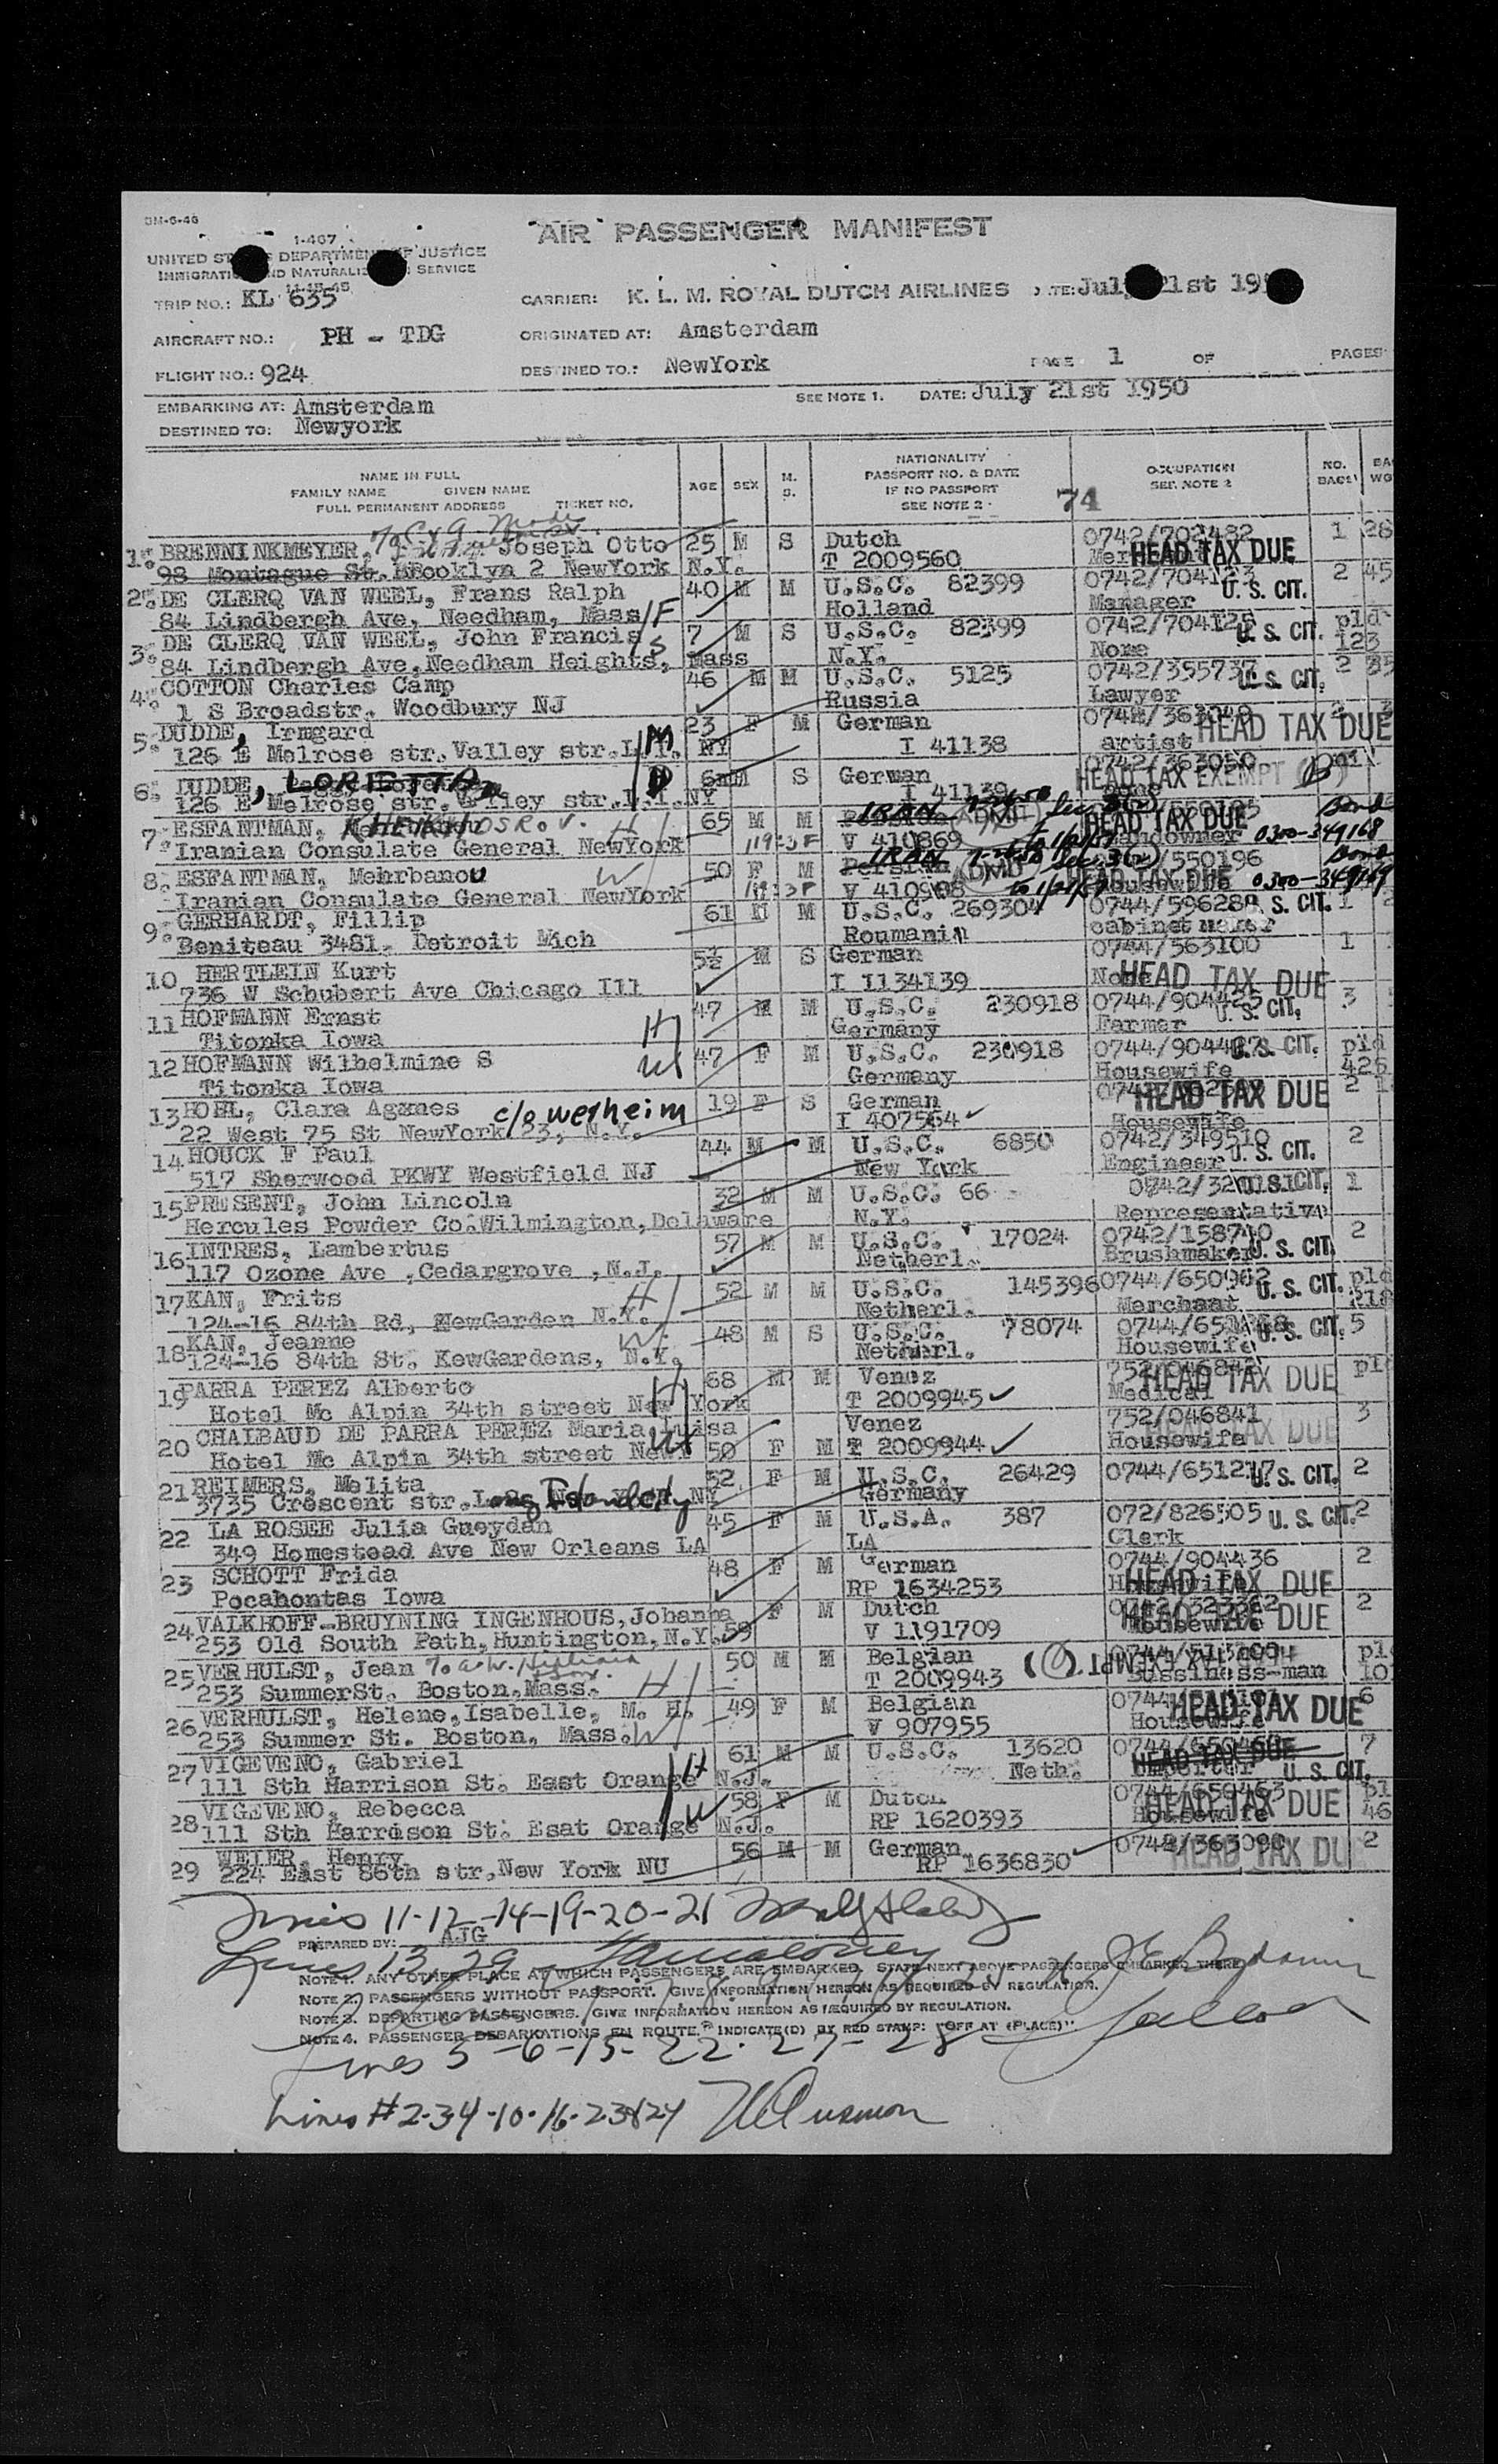 DM-6-46
AIR PASSENGER MANIFEST
1-467
UNITED DEPARTMENT OF JUSTICE
IMMIGRATION AND NATURALIZATION SERVICE
11-15-45
TRIP NO.: KL 635 CARRIER: K. L. M. ROYAL DUTCH AIRLINES July 21st 19
AIRCRAFT NO.: PH - TDG ORIGINATED AT: Amsterdam
FLIGHT NO.: 924 DESTINED TO.: NewYork PAGE 1 OF PAGES
EMBARKING AT: Amsterdam SEE NOTE 1. DATE: July 21st 1950
DESTINED TO: Newyork
NAME IN FULL
FAMILY NAME GIVEN NAME
FULL PERMANENT ADDRESS TICKET NO.
AGE SEX M. S.
NATIONALITY
PASSPORT NO. & DATE
IF NO PASSPORT
SEE NOTE 2
74
OCCUPATION
SEE NOTE 2
NO. BAGS
1. BRENNINKMEYER, Joseph Otto 25 M S Dutch 0742/702482 1 28
98 Montague St. Brooklyn 2 NewYork N.Y. T 2009560 HEAD TAX DUE
2. DE CLERQ VAN WEEL, Frans Ralph 40 M M U.S.C. 82399 2 45
84 Lindbergh Ave, Needham, Mass F Holland Manager U. S. CIT.
3. DE CLERQ VAN WEEL, John Francis S 7 M S U.S.C. 82399 0742/704125 U. S. CIT. pld
84 Lindbergh Ave, Needham Heights, Mass N.Y. None 123
4. COTTON Charles Camp 46 M M U.S.C. 5125 0742/355737 U. S. CIT. 2 35
1 S Broadstr. Woodbury NJ Russia Lawyer
5. DUDDE, Irmgard 23 F M German
126 E Melrose str. Valley str.L.I. NY M I 41138 artist HEAD TAX DUE
6. DUDDE, LORIETTA S German 0742/363050
126 E Melrose str. str.L.I.NY I 41139 HEAD TAX EXEMPT
7. ESFANTMAN, 65 M M IRAN HEAD TAX DUE Bond
Iranian Consulate General NewYork H V 410869 Landowner 0300-349168
8. ESFANTMAN, Mehrbanou W 50 F M IRAN /550196 Bond
Iranian Consulate General NewYork HEAD TAX DUE Housewife 0300-349169
9. GERHARDT, Fillip 61 M M U.S.C. 269304 U. S. CIT. 1
Beniteau 3481, Detroit Mich Roumania
10 HERTLEIN Kurt 5½ M S German 0744/563100 1
736 W Schubert Ave Chicago Ill I 1134139 None HEAD TAX DUE
11 HOFMANN Ernst 47 M M U.S.C. 230918 0744/904425 U. S. CIT. 3
Titonka Iowa H Germany Farmer
12 HOFMANN Wilhelmine S W 47 F M U.S.C. 230918 U. S. CIT. pld
Titonka Iowa Germany Housewife 426
13 HOHL, Clara Agznes c/o werheim 19 F S German HEAD TAX DUE 2
22 West 75 St NewYork 23, N.Y. I 407564 Housewife
14 HOUCK F Paul 44 M M U.S.C. 6850 0742/349510 2
517 Sherwood PKWY Westfield NJ New York Engineer U. S. CIT.
15 PRESENT, John Lincoln 32 M M U.S.C. 66 U.S. CIT. 1
Hercules Powder Co. Wilmington, Delaware N.Y. Representative
16 INTRES, Lambertus 57 M M U.S.C. 17024 2
117 Ozone Ave ,Cedargrove ,N.J. Netherl. Brushmaker U. S. CIT.
17 KAN, Frits H 52 M M U.S.C. 145396 0744/650962 U. S. CIT. pld
124-16 84th Rd, NewGarden N.Y. Netherl. Merchant 218
18 KAN, Jeanne W 48 M S U.S.C. 78074 U. S. CIT. 5
124-16 84th St. KewGardens, N.Y. Netherl. Housewife
19 PARRA PEREZ Alberto H 68 M M Venez HEAD TAX DUE pld
Hotel Mc Alpin 34th street New York T 2009945 Medical
20 CHALBAUD DE PARRA PEREZ Maria Luisa W Venez 752/046841 3
Hotel Mc Alpin 34th street New 50 F M T 2009944 Housewife HEAD TAX DUE
21 REIMERS, Melita 52 F M U.S.C. 26429 0744/651217 U. S. CIT. 2
3735 Crescent str. Long Island City NY Germany
22 LA ROSEE Julia Gueydan 45 F M U.S.A. 387 072/826505 U. S. CIT. 2
349 Homestead Ave New Orleans LA LA Clerk
23 SCHOTT Frida 48 F M German 0744/904436 2
Pocahontas Iowa RP 1634253 Housewife HEAD TAX DUE
24 VALKHOFF-BRUYNING INGENHOUS, Johanna F M Dutch HEAD TAX DUE 2
253 Old South Path, Huntington, N.Y. 59 V 1191709 Housewife
25 VERHULST, Jean H 50 M M Belgian pld
253 SummerSt. Boston, Mass. T 2009943 Bussiness-man
26 VERHULST, Helene, Isabelle, M. H. W 49 F M Belgian HEAD TAX DUE 6
253 Summer St. Boston, Mass. V 907955 Housewife
27 VIGEVENO, Gabriel H 61 M M U.S.C. 13620 7
111 Sth Harrison St. East Orange N.J. Neth. HEAD TAX DUE U. S. CIT.
28 VIGEVENO, Rebecca W 58 F M Dutch pl
111 Sth Harrison St. Esat Orange N.J. RP 1620393 Housewife HEAD TAX DUE 46
29 WEIER, Henry 56 M M German 2
224 East 86th str, New York NU RP 1636830 HEAD TAX DUE
Lines 11-12-14-19-20-21
PREPARED BY: AJG
Lines 13 29
NOTE 1. ANY OTHER PLACE AT WHICH PASSENGERS ARE EMBARKED. STATE NEXT ABOVE PASSENGERS EMBARKED THERE
NOTE 2. PASSENGERS WITHOUT PASSPORT. GIVE INFORMATION HEREON AS REQUIRED BY REGULATION.
NOTE 3. DEPARTING PASSENGERS. GIVE INFORMATION HEREON AS REQUIRED BY REGULATION.
NOTE 4. PASSENGER DEBARKATIONS EN ROUTE. INDICATE(D) BY RED STAMP: "OFF AT (PLACE)"
Lines 5-6-15-22-27-28
Lines #2-3-4-10-16-23&24